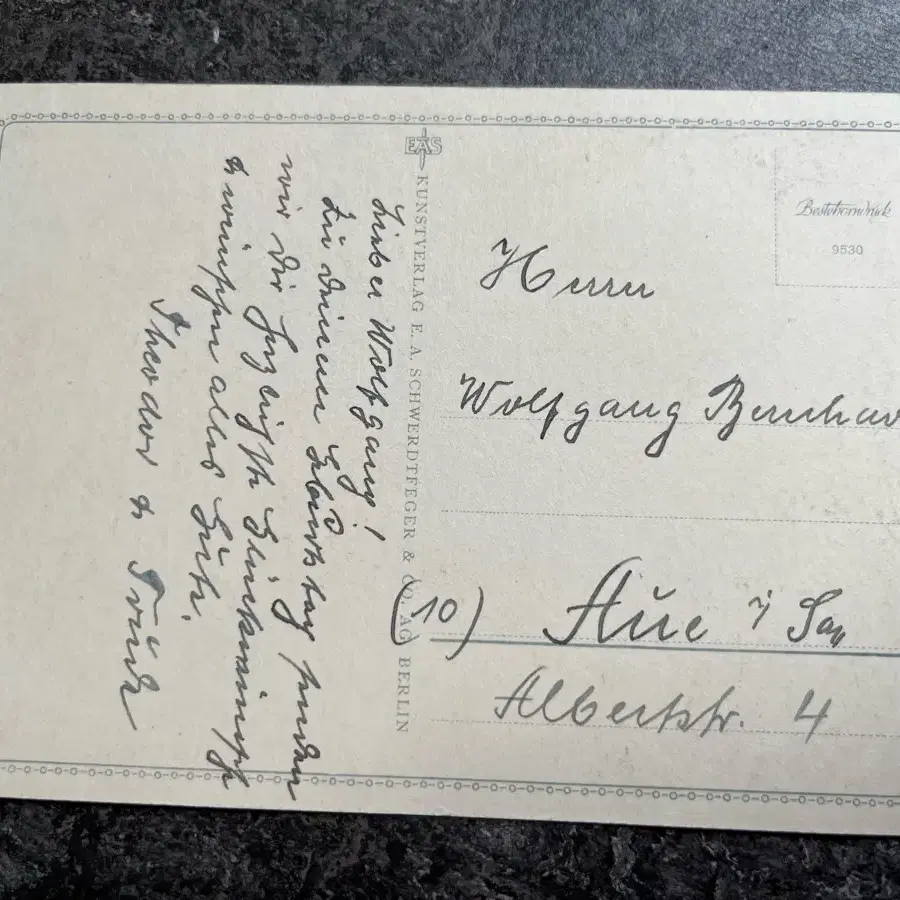 Lieber Wolfgang!
Zu deinem Geburtstag senden
wir dir herzlichste Glückwünsche
& wünschen alles Gute.
Theodor &
EAS
KUNSTVERLAG E. A. SCHWERDTFEGER & CO. AG BERLIN
Bestehorndruck
9530
Herrn
Wolfgang
(10) Aue i Sa
Albertstr. 4